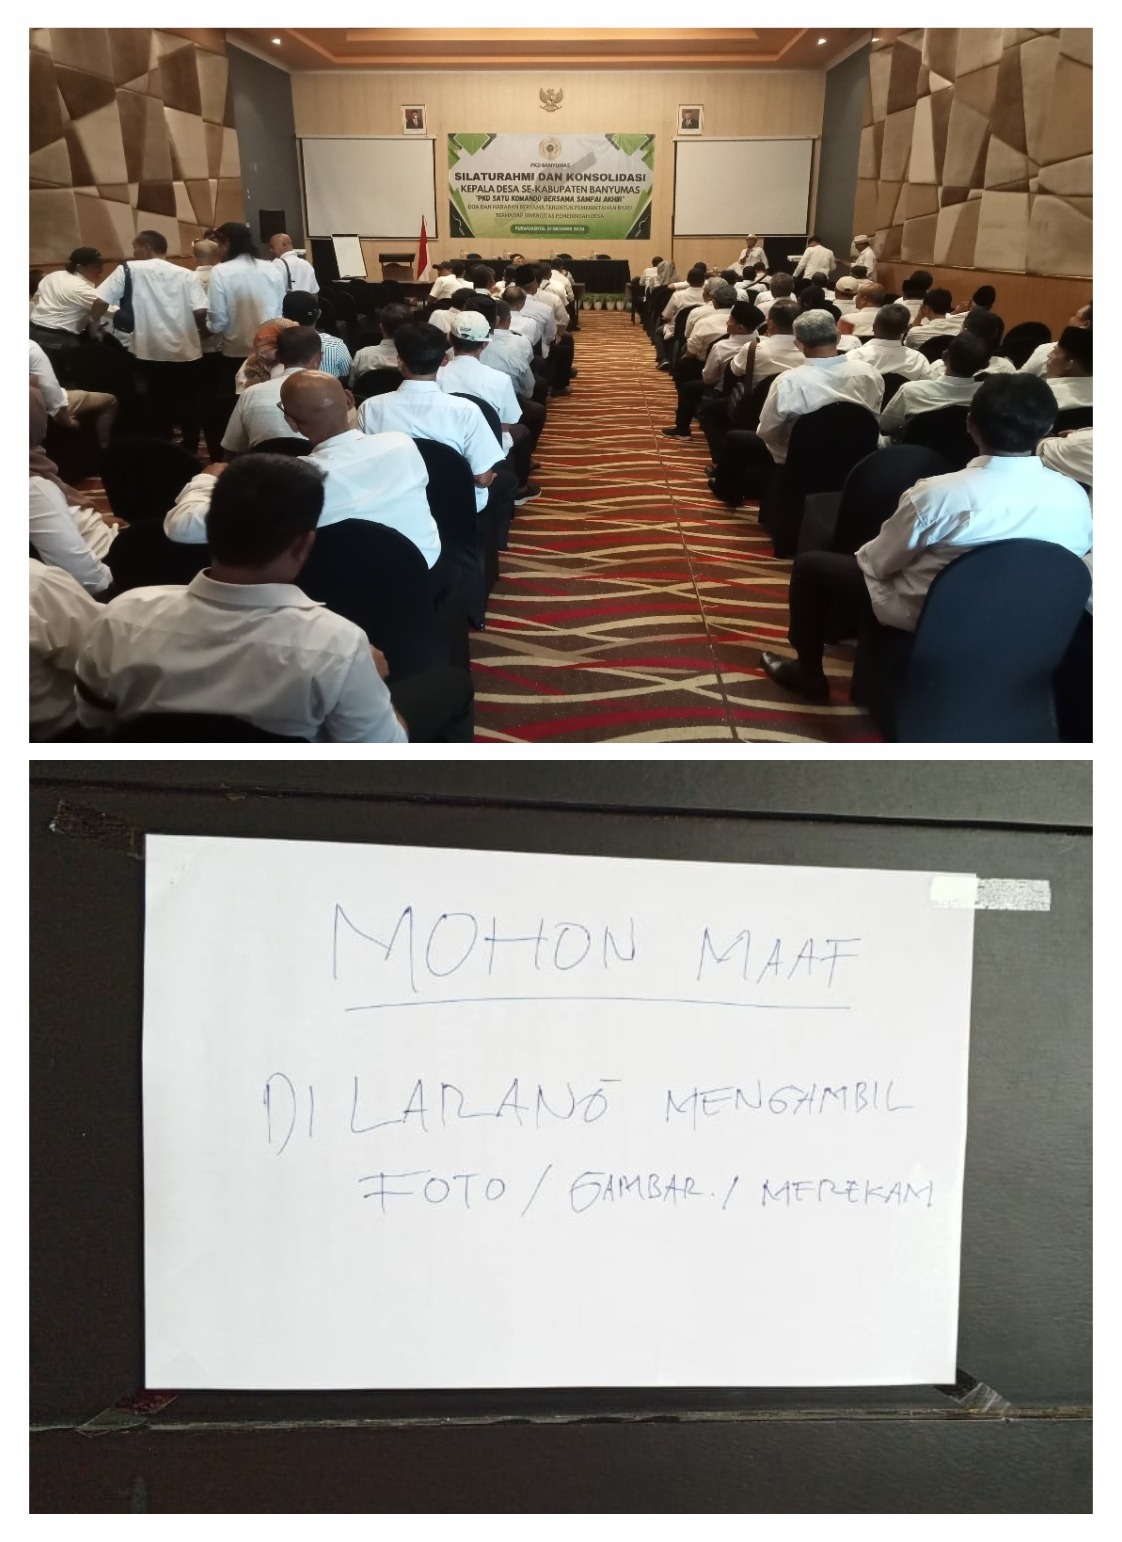 PKD BANYUMAS
SILATURAHMI DAN KONSOLIDASI
KEPALA DESA SE-KABUPATEN BANYUMAS
"PKD SATU KOMANDO BERSAMA SAMPAI AKHIR"
DOA DAN HARAPAN BERSAMA PEMERINTAHAN BARU
TERHADAP SINERGITAS PEMERINTAH DESA
PURWOKERTO, 2024
MOHON MAAF
DI LARANG MENGAMBIL
FOTO / GAMBAR. / MEREKAM